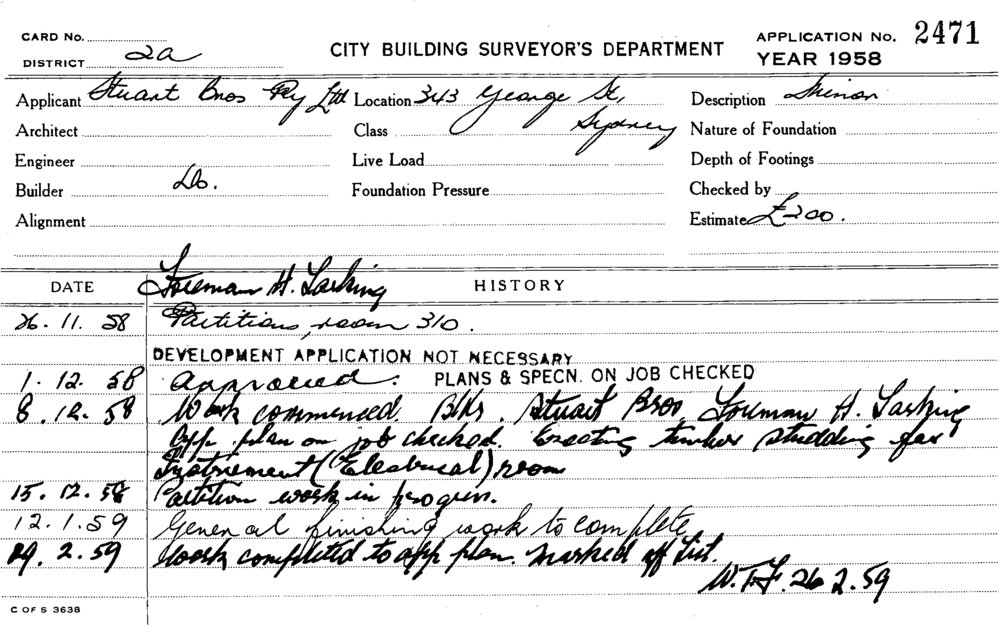 CARD No.
DISTRICT 2a
CITY BUILDING SURVEYOR'S DEPARTMENT
APPLICATION No. 2471
YEAR 1958
Applicant Stuart Bros Pty Ltd Location 343 George St, Description Minor
Architect Class Sydney Nature of Foundation
Engineer Live Load Depth of Footings
Builder Do. Foundation Pressure Checked by
Alignment Estimate £200.
Foreman H. Larking
DATE HISTORY
26.11.58 Partitions, room 310.
DEVELOPMENT APPLICATION NOT NECESSARY
1.12.58 Approved. PLANS & SPECN. ON JOB CHECKED
8.12.58 Work commenced. Blds. Stuart Bros Foreman H. Larking
App. plan on job checked. Erecting timber studding for
Instrument (Electrical) room
15.12.58 Partition work in progress.
12.1.59 General finishing work to complete
2.59 Work completed to app plan. Marked off list.
26 2.59
C OF S 3638